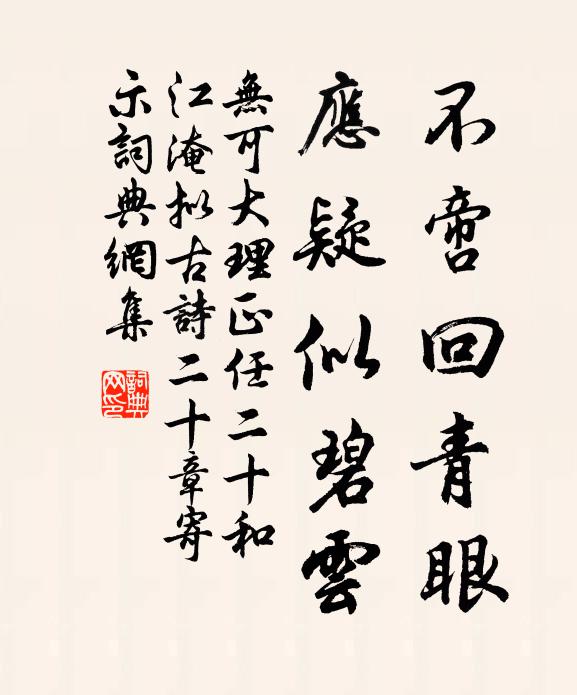 不啻回青眼
應疑似碧雲
無可大理正任二十和
江淹拟古詩二十章寄
示詞典網集
詞典网印